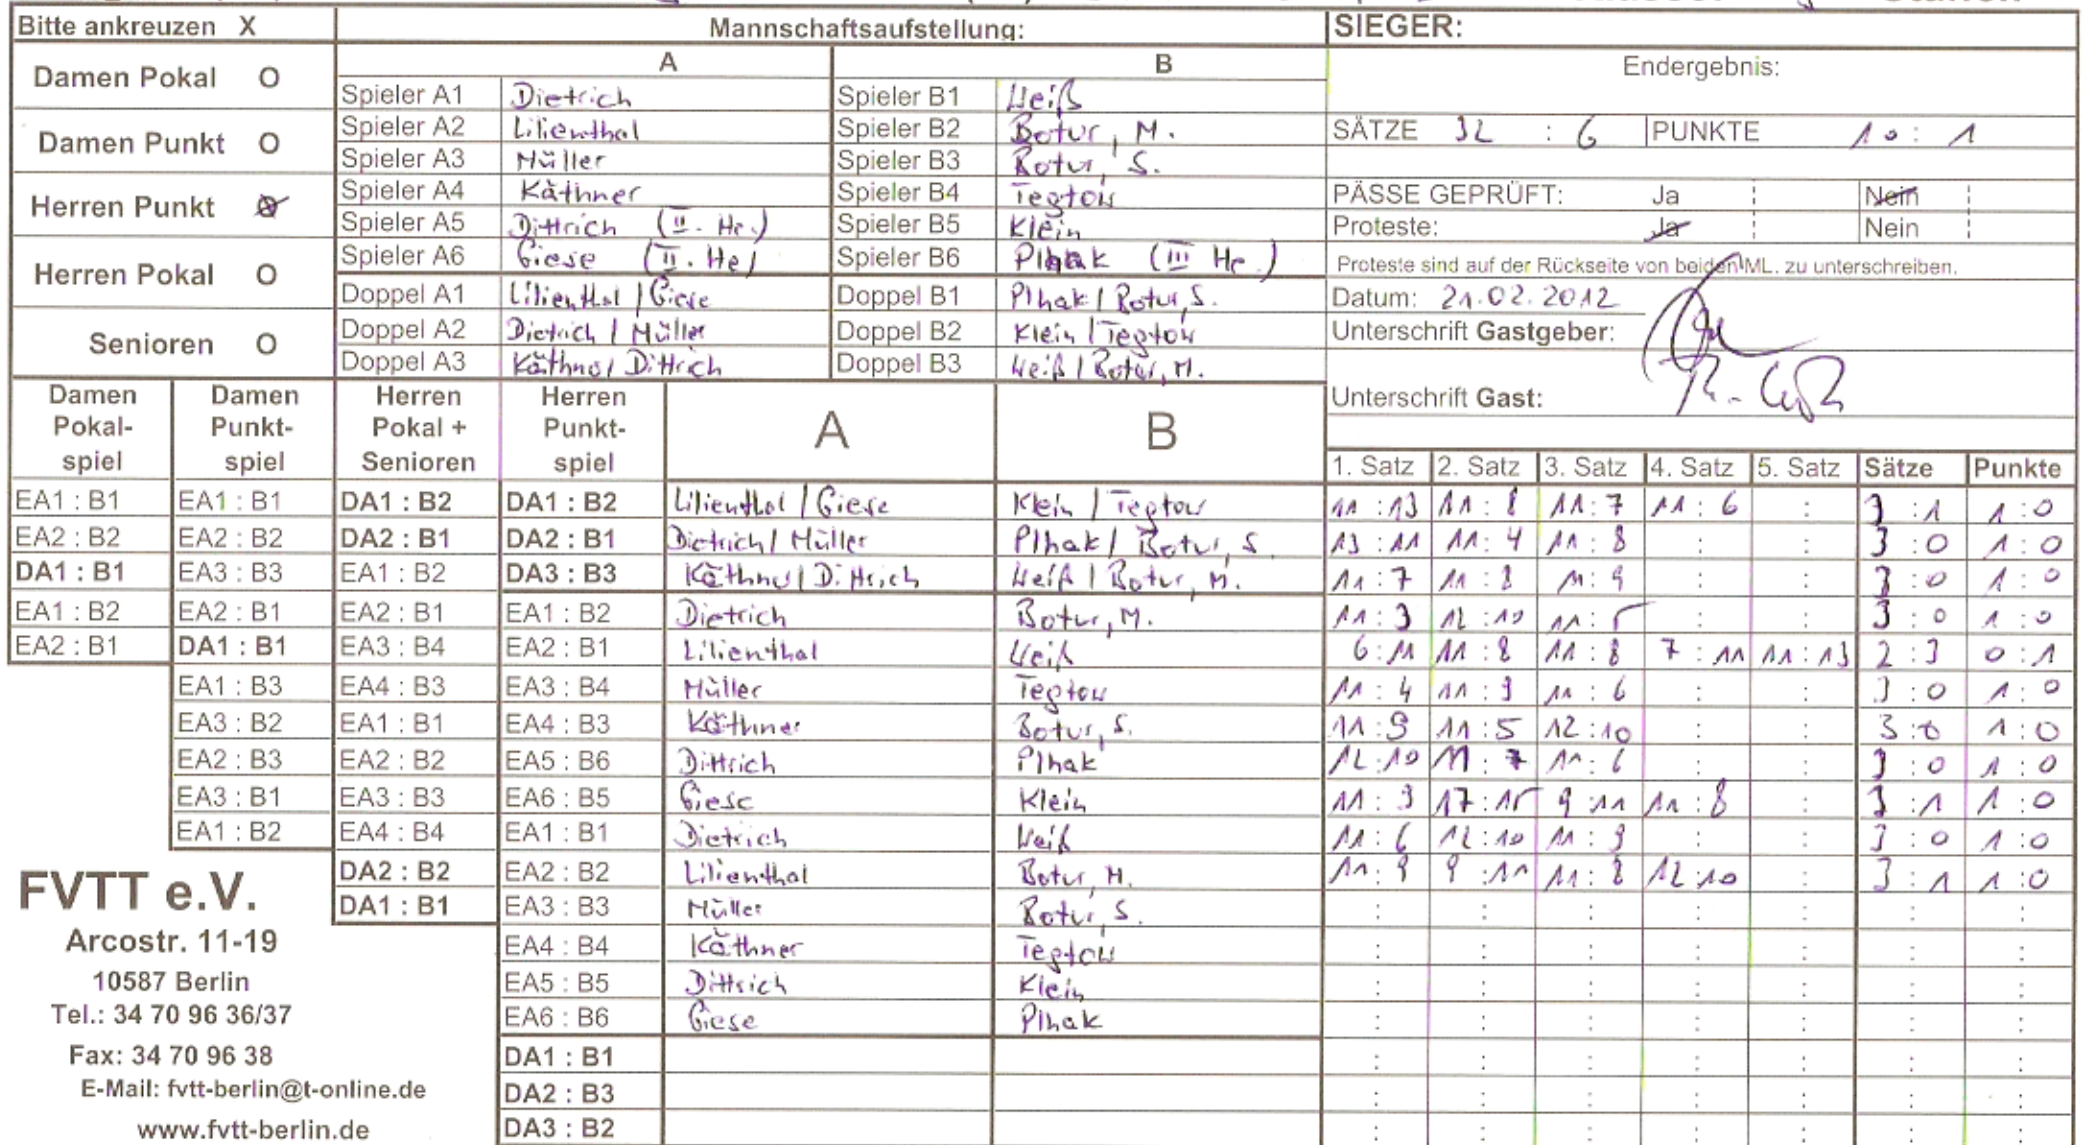 Bitte ankreuzen X
Damen Pokal O
Damen Punkt O
Herren Punkt
Herren Pokal O
Senioren O
Mannschaftsaufstellung:
A B
Spieler A1 Dietrich Spieler B1 Weiß
Spieler A2 Lilienthal Spieler B2 Botur, M.
Spieler A3 Müller Spieler B3 Botur, S.
Spieler A4 Käthner Spieler B4 Tegtow
Spieler A5 Dittrich (II. He.) Spieler B5 Klein
Spieler A6 Giese (II. He) Spieler B6 Plhak (III He.)
Doppel A1 Lilienthal / Giese Doppel B1 Plhak / Botur, S.
Doppel A2 Dietrich / Müller Doppel B2 Klein / Tegtow
Doppel A3 Käthner / Dittrich Doppel B3 Weiß / Botur, M.
SIEGER:
Endergebnis:
SÄTZE 32 : 6 PUNKTE 10 : 1
PÄSSE GEPRÜFT: Ja Nein
Proteste: Ja Nein
Proteste sind auf der Rückseite von beiden ML. zu unterschreiben.
Datum: 21.02.2012
Unterschrift Gastgeber:
Unterschrift Gast:
Damen Pokal-spiel Damen Punkt-spiel Herren Pokal + Senioren Herren Punkt-spiel A B 1. Satz 2. Satz 3. Satz 4. Satz 5. Satz Sätze Punkte
EA1 : B1 EA1 : B1 DA1 : B2 DA1 : B2 Lilienthal / Giese Klein / Tegtow 11 : 13 11 : 8 11 : 7 11 : 6 : 3 : 1 1 : 0
EA2 : B2 EA2 : B2 DA2 : B1 DA2 : B1 Dietrich / Müller Plhak / Botur, S 13 : 11 11 : 4 11 : 8 : : 3 : 0 1 : 0
DA1 : B1 EA3 : B3 EA1 : B2 DA3 : B3 Käthner / Dittrich Weiß / Botur, M. 11 : 7 11 : 8 11 : 9 : : 3 : 0 1 : 0
EA1 : B2 EA2 : B1 EA2 : B1 EA1 : B2 Dietrich Botur, M. 11 : 3 12 : 10 11 : 5 : : 3 : 0 1 : 0
EA2 : B1 DA1 : B1 EA3 : B4 EA2 : B1 Lilienthal Weiß 6 : 11 11 : 8 11 : 8 7 : 11 11 : 13 2 : 3 0 : 1
EA1 : B3 EA4 : B3 EA3 : B4 Müller Tegtow 11 : 4 11 : 3 11 : 6 : : 3 : 0 1 : 0
EA3 : B2 EA1 : B1 EA4 : B3 Käthner Botur, S. 11 : 9 11 : 5 12 : 10 : : 3 : 0 1 : 0
EA2 : B3 EA2 : B2 EA5 : B6 Dittrich Plhak 12 : 10 11 : 7 11 : 6 : : 3 : 0 1 : 0
EA3 : B1 EA3 : B3 EA6 : B5 Giese Klein 11 : 3 17 : 15 9 : 11 11 : 8 : 3 : 1 1 : 0
EA1 : B2 EA4 : B4 EA1 : B1 Dietrich Weiß 11 : 6 12 : 10 11 : 3 : : 3 : 0 1 : 0
DA2 : B2 EA2 : B2 Lilienthal Botur, M. 11 : 9 9 : 11 11 : 8 12 : 10 : 3 : 1 1 : 0
DA1 : B1 EA3 : B3 Müller Botur, S. : : : : : : :
EA4 : B4 Käthner Tegtow : : : : : : :
EA5 : B5 Dittrich Klein : : : : : : :
EA6 : B6 Giese Plhak : : : : : : :
DA1 : B1 : : : : : : :
DA2 : B3 : : : : : : :
DA3 : B2 : : : : : : :
FVTT e.V.
Arcostr. 11-19
10587 Berlin
Tel.: 34 70 96 36/37
Fax: 34 70 96 38
E-Mail: fvtt-berlin@t-online.de
www.fvtt-berlin.de